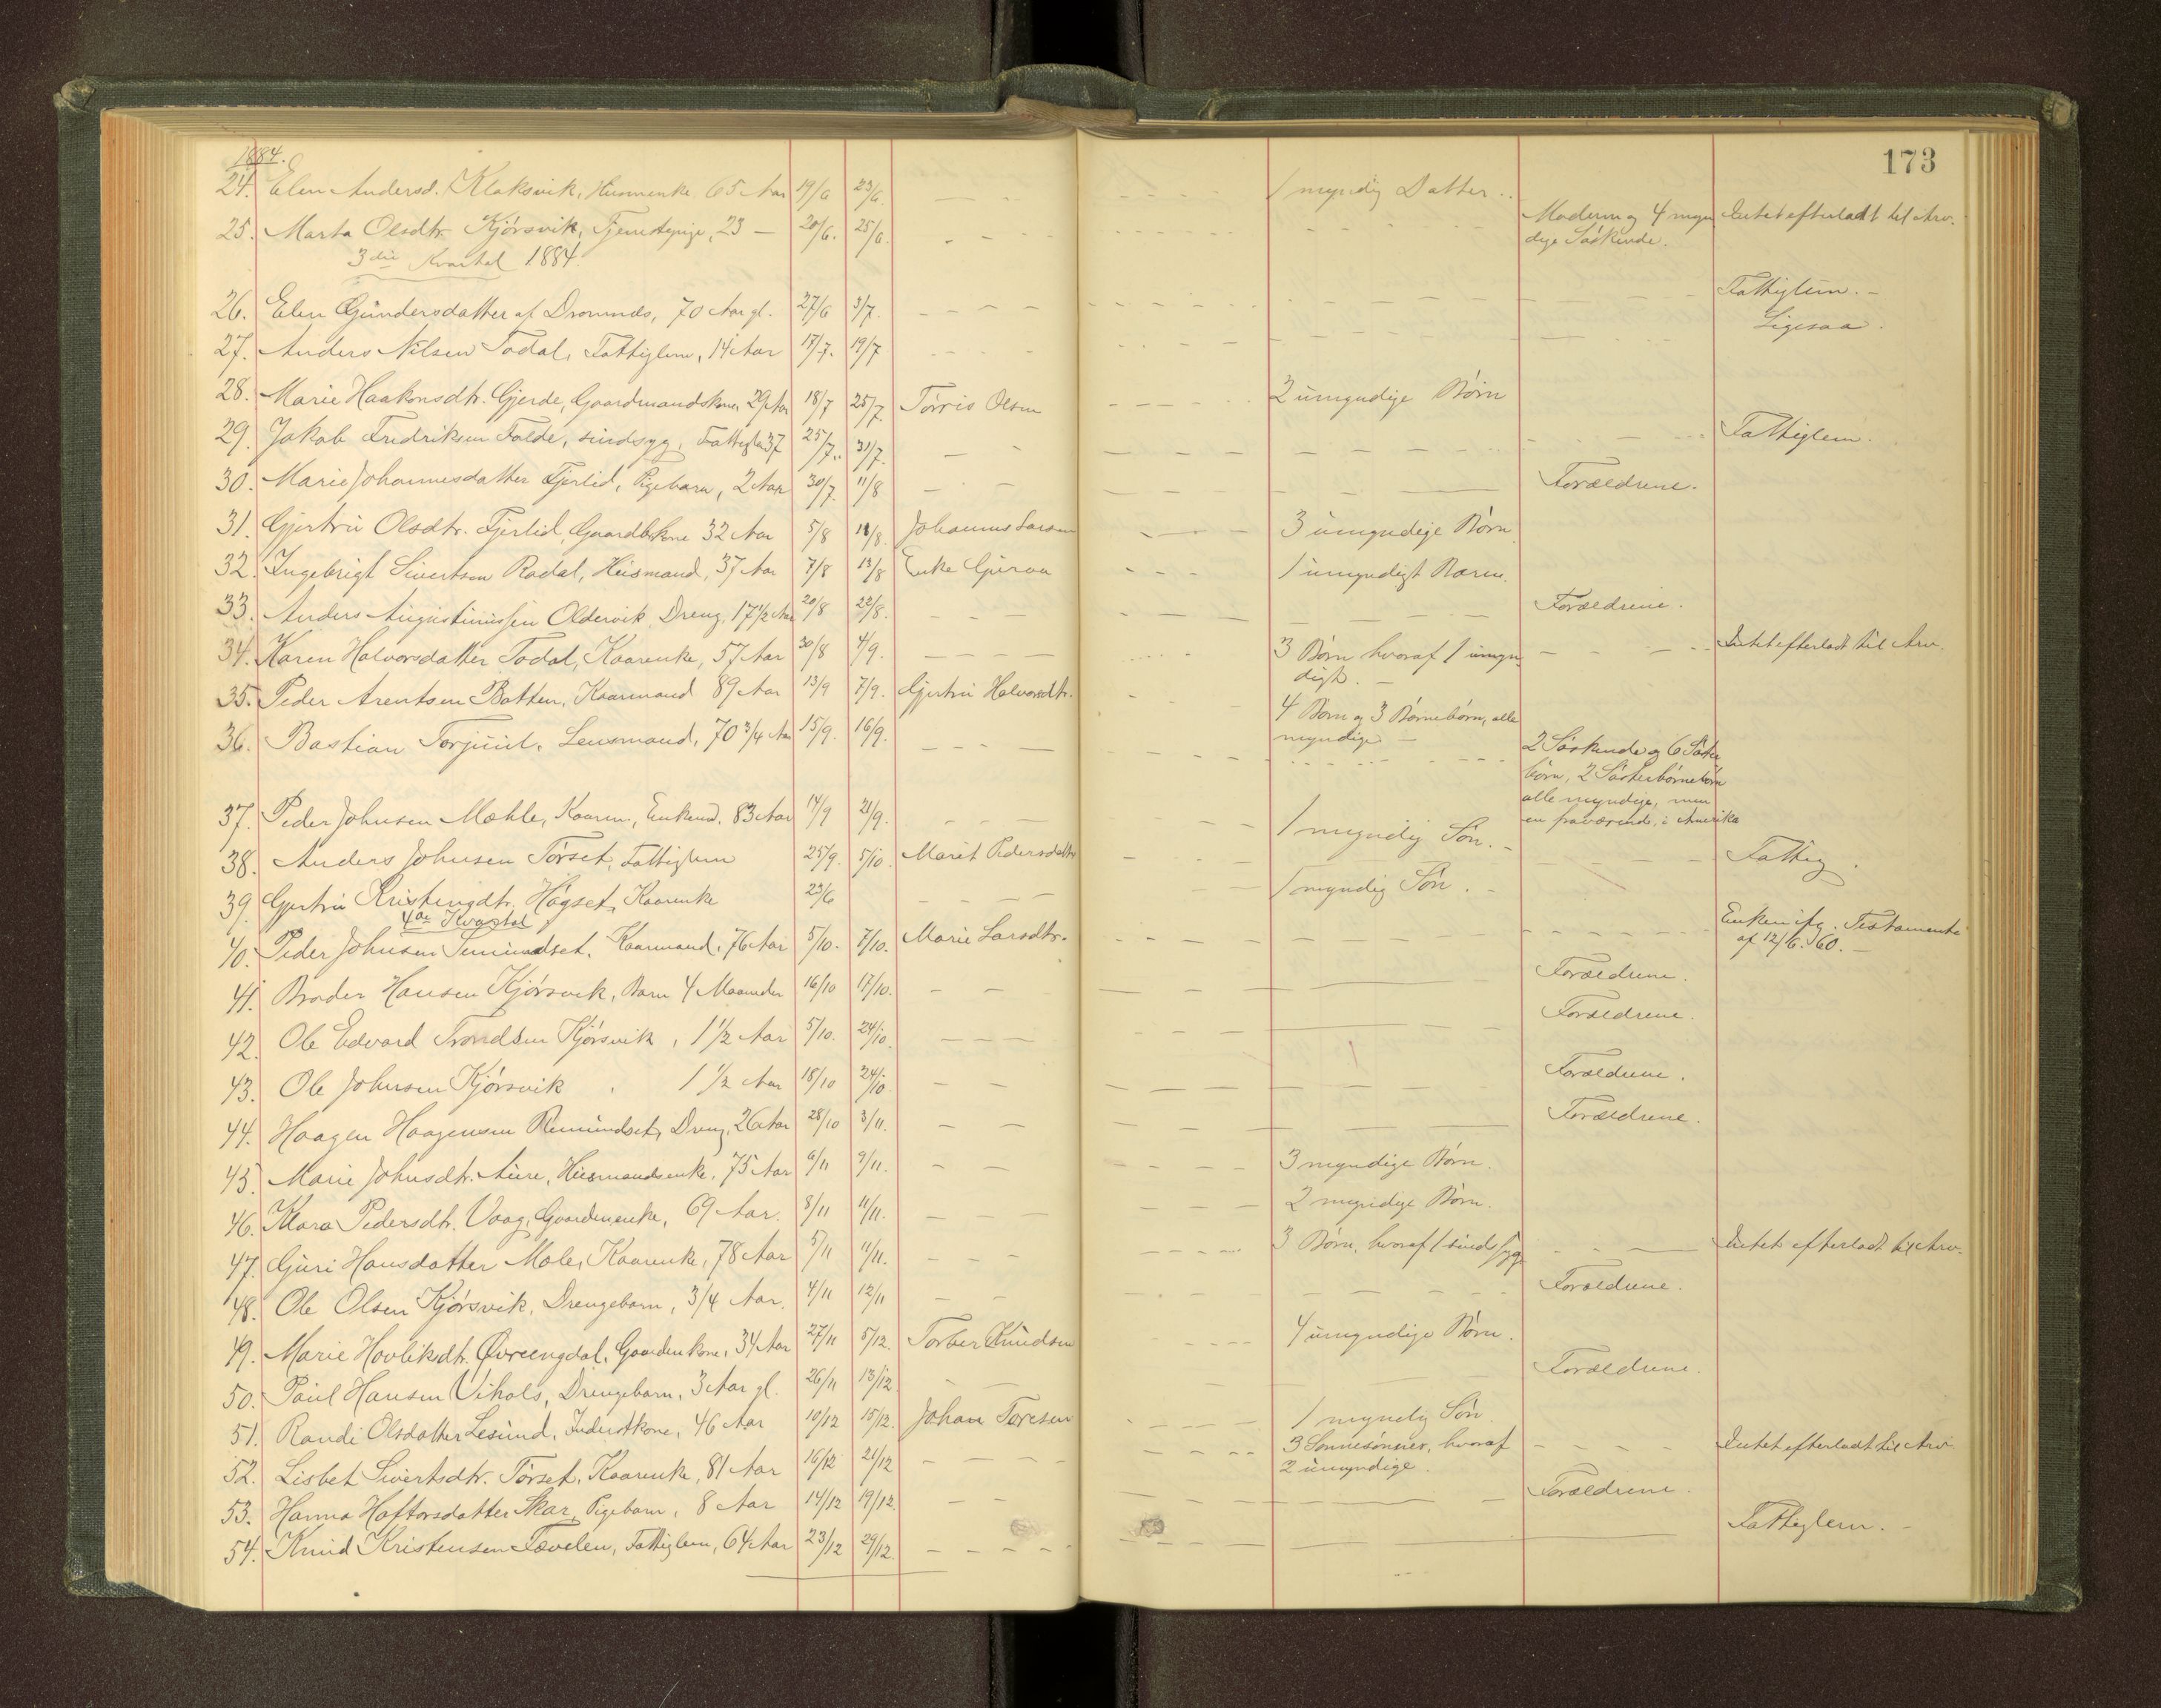 173
1884.
24. Elen Andersd. Klaksvik, Husmenke 65 Aar 19/6 23/6. 1 myndig Datter.
25. Marta Olsdtr. Kjørsvik, Tjenestepige, 23 — 20/6. 25/6 Moderen og 4 myn Intet efterladt til Arv.
dige Søskende.
3die Kvartal 1884.
26. Elen Gundersdatter af Dromnes, 70 Aar gl. 27/6 3/7. Fattiglem.
27. Anders Nilsen Todal, Fattiglem, 14 Aar 17/7. 19/7 Ligesaa.
28. Marie Haakonsdtr. Gjerde, Gaardmandskone, 29 Aar 18/7 25/7. Tørris Olsen 2 umyndige Børn
29. Jakob Fredriksen Folde, sindssyg, Fattigle 37 25/7. 31/7. Fattiglem.
30. Marie Johannesdatter Fjerlid, Pigebarn, 2 Aar 30/7. 11/8 Forældrene.
31. Gjertru Olsdtr. Fjerlid, Gaardbkone 32 Aar 5/8 11/8. Johannes Larsen 3 umyndige Børn
32. Ingebrigt Sivertsen Rodal, Husmand, 37 Aar 7/8 13/8 Enke Guroa 1 umyndigt Barn.
33. Anders Augustinussen Oldervik, Dreng, 17 1/2 Aar 20/8 22/8. Forældrene.
34. Karen Halvorsdatter Todal, Kaarenke, 57 Aar 30/8 4/9. 3 Børn hvoraf 1 umyn Intet efterladt til Arv.
digt.
35. Peder Arentsen Botten, Kaarmand 89 Aar 13/9 7/9. Gjertru Halvorsdtr. 4 Børn og 3 Børnebørn, alle
myndige
36. Bastian Torjuul, Lensmand, 70 3/4 Aar 15/9. 16/9. 2 Søskende og 6 Søster
børn, 2 Søsterbørnebørn
alle myndige, men
en fraværende, i Amerika
37. Peder Johnsen Mæhle, Kaarm., Enkemd. 83 Aar 14/9 21/9. 1 myndig Søn.
38. Anders Johnsen Tørset, Fattiglem 25/9. 5/10. Marit Pedersdatter 1 myndig Søn. Fattig.
39. Gjertru Kristensdtr. Høgset, Kaarenke 23/6
4de Kvartal
40. Peder Johnsen Semundset, Kaarmand, 76 Aar 5/10. 7/10. Marie Larsdtr. Enken ifg. Testamente
af 12/6. 60.
41. Broder Hansen Kjørsvik, Barn 4 Maaneder 16/10 17/10. Forældrene.
42. Ole Edvard Trondsen Kjørsvik, 1 1/2 Aar 5/10. 24/10. Forældrene.
43. Ole Johnsen Kjørsvik 1 1/2 Aar 18/10 24/10. Forældrene.
44. Haagen Haagensen Remundset, Dreng, 26 Aar 28/10 3/11. Forældrene.
45. Marie Johnsdtr. Aure, Husmandsenke, 75 Aar 6/11 9/11. 3 myndige Børn.
46. Klara Pedersdt. Vaag, Gaardmenke, 69 Aar. 8/11 11/11. 2 myndige Børn.
47. Guri Hansdatter Mole, Kaarenke, 78 Aar 5/11 11/11. 3 Børn, hvoraf 1 sindssyg Intet efterladt til Arv.
48. Ole Olsen Kjørsvik, Drengebarn, 3/4 Aar. 4/11 12/11 Forældrene.
49. Marie Hovliksdtr. Øvreengdal, Gaardmkone, 34 Aar 27/11 5/12. Torber Knudsen 4 umyndige Børn.
50. Paul Hansen Vihals, Drengebarn, 3 Aar gl. 26/11 13/12. Forældrene.
51. Randi Olsdatter Lesund, Inderstkone, 46 Aar 10/12 15/12. Johan Toresen 1 myndig Søn
52. Lisbet Sivertsdtr. Tørset, Kaarenke, 81 Aar 16/12 21/12 3 Sønnesønner, hvoraf Intet efterladt til Arv
2 umyndige.
53. Hanna Haftorsdatter Skar, Pigebarn, 8 Aar 14/12 19/12. Forældrene.
54. Knud Kristensen Tævelen, Fattiglem, 64 Aar 23/12 29/12. Fattiglem.